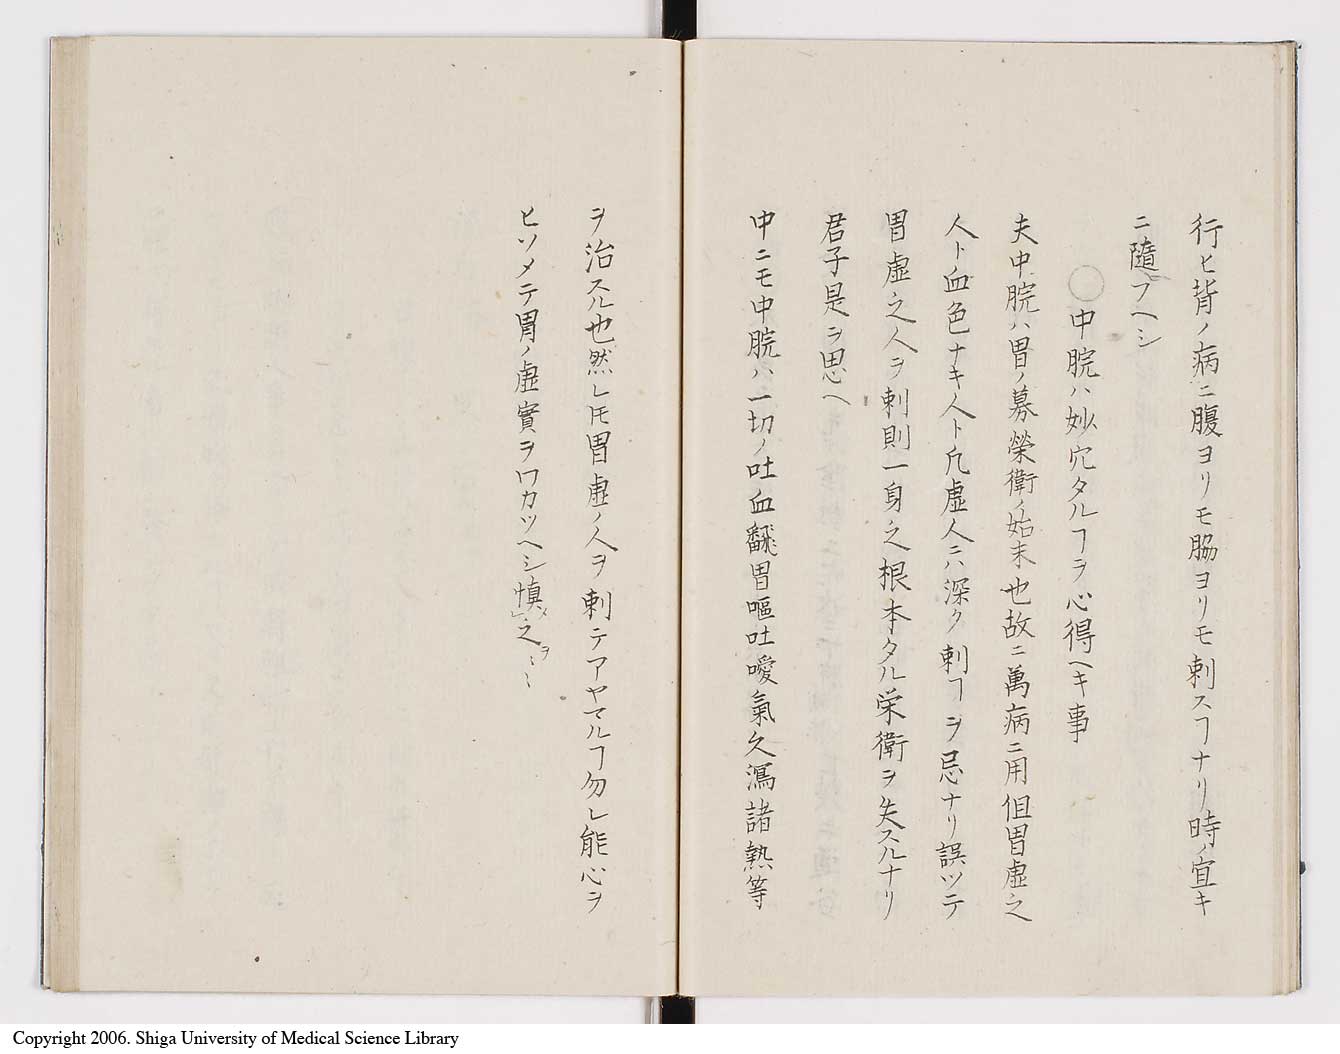 行ヒ背ノ病ニ腹ヨリモ脇ヨリモ刺スヿナリ時ノ宜キ
ニ隨フヘシ
〇中脘ハ妙穴タルヿヲ心得ヘキ事
夫中脘ハ胃ノ募榮衛ノ始末也故ニ萬病ニ用但胃虚之
人ト血色ナキ人ト凢虚人ニハ深ク刺ヿヲ忌ナリ誤ツテ
胃虚之人ヲ刺則一身之根本タル栄衛ヲ失スルナリ
君子是ヲ思ヘ
中ニモ中脘ハ一切ノ吐血翻胃嘔吐噯氣久瀉諸熱等
ヲ治スル也然レ𪜈胃虚ノ人ヲ刺テアヤマルヿ勿レ能心ヲ
ヒソメテ胃ノ虚實ヲワカツヘシ慎メ之ヲ〻〻
Copyright 2006. Shiga University of Medical Science Library